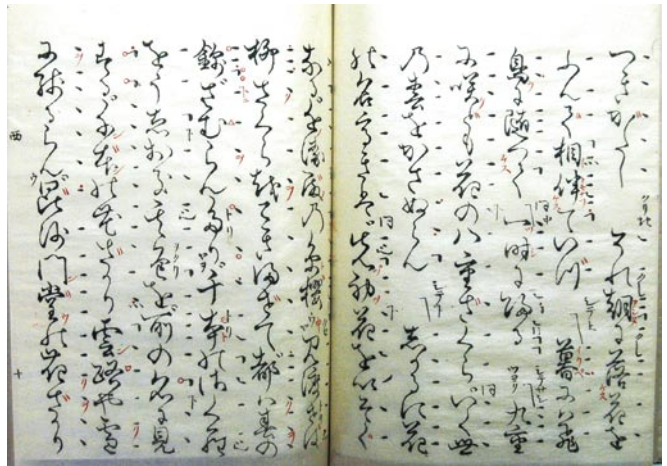 つきがたし　それ朝に落花を
ふんで相伴ていづ　暮にハ飛
鳥に随つて一時に帰る　九重
に咲ども花の八重ざくらいく世
乃春をかさぬらん　しかるに花
の名高きは先初花をいそぐ
なる近衛殿乃糸桜見渡せば
柳さくらをこきまぜて都ハ春の
錦さむらんたり千本のさくら
をうゑおき其色を所の名に見
する千本の花ざかり雲路や雪
に残るらん毘沙門堂の花ざかり
西
十